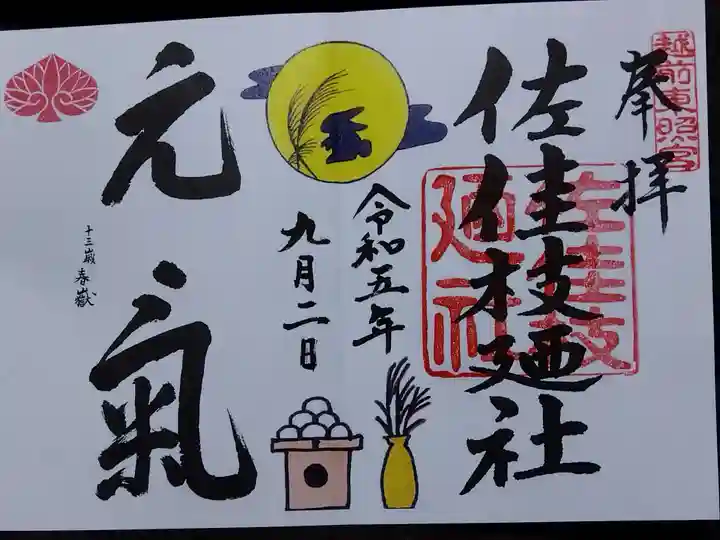 奉拝
越前東照宮
佐佳枝廼社
佐佳枝
廼社
令和五年
九月二日
元氣
十三歳 春嶽